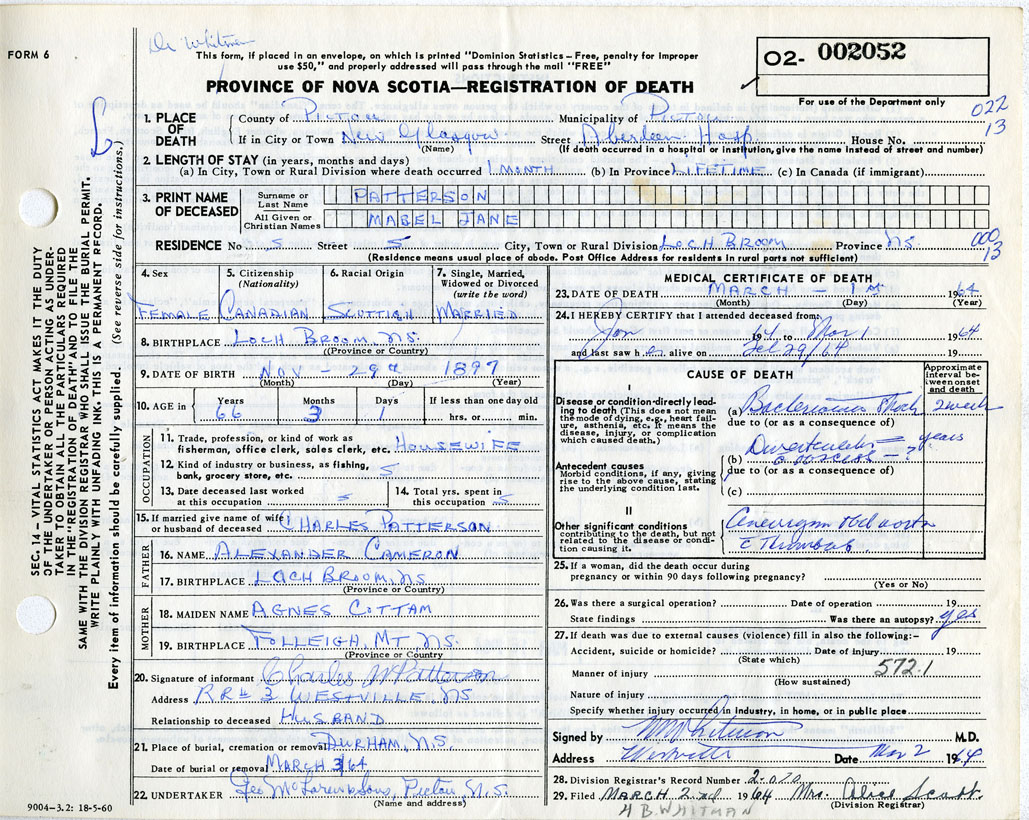 FORM 6
Dr Whitman
This form, if placed in an envelope, on which is printed "Dominion Statistics – Free, penalty for improper
use $50," and properly addressed will pass through the mail "FREE"
PROVINCE OF NOVA SCOTIA—REGISTRATION OF DEATH
O2- 002052
For use of the Department only
022
13
1. PLACE OF DEATH
County of Pictou Municipality of Pictou
If in City or Town New Glasgow Street Aberdeen Hosp House No.
(Name) (If death occurred in a hospital or institution, give the name instead of street and number)
2. LENGTH OF STAY (in years, months and days)
(a) In City, Town or Rural Division where death occurred 1 MONTH (b) In Province LIFETIME (c) In Canada (if immigrant)
3. PRINT NAME OF DECEASED
Surname or Last Name PATTERSON
All Given or Christian Names MABEL JANE
RESIDENCE No S Street S City, Town or Rural Division LOCH BROOM Province N.S. 000
13
(Residence means usual place of abode. Post Office Address for residents in rural parts not sufficient)
4. Sex
FEMALE
5. Citizenship
(Nationality)
CANADIAN
6. Racial Origin
SCOTTISH
7. Single, Married,
Widowed or Divorced
(write the word)
MARRIED
8. BIRTHPLACE LOCH BROOM, N.S.
(Province or Country)
9. DATE OF BIRTH NOV – 29th 1897
(Month) (Day) (Year)
10. AGE in
Years Months Days If less than one day old
66 3 1 hrs. or min.
OCCUPATION
11. Trade, profession, or kind of work as
fisherman, office clerk, sales clerk, etc. HOUSEWIFE
12. Kind of industry or business, as fishing,
bank, grocery store, etc. S
13. Date deceased last worked
at this occupation S
14. Total yrs. spent in
this occupation S
15. If married give name of wife
or husband of deceased CHARLES PATTERSON
FATHER
16. NAME ALEXANDER CAMERON
17. BIRTHPLACE LOCH BROOM, N.S
(Province or Country)
MOTHER
18. MAIDEN NAME AGNES COTTAM
19. BIRTHPLACE FOLLEIGH, MT N.S.
(Province or Country
20. Signature of informant Charles W Patterson
Address RR# 3 WESTVILLE, N.S
Relationship to deceased HUSBAND
21. Place of burial, cremation or removal DURHAM, N.S.
Date of burial or removal MARCH 3/64
22. UNDERTAKER Geo McLaren & Sons, Pictou N.S.
(Name and address)
9004–3.2: 18-5-60
MEDICAL CERTIFICATE OF DEATH
23. DATE OF DEATH MARCH – 1st 1964
(Month) (Day) (Year)
24. I HEREBY CERTIFY that I attended deceased from:
Jan 1964 to Mar 1 1964
and last saw h er alive on Feb 29/64 19
CAUSE OF DEATH
Approximate
interval be-
tween onset
and death
I
Disease or condition directly lead-
ing to death (This does not mean
the mode of dying, e.g., heart fail-
ure, asthenia, etc. It means the
disease, injury, or complication
which caused death.)
(a) Shock 2 weeks
due to (or as a consequence of)
Antecedent causes
Morbid conditions, if any, giving
rise to the above cause, stating
the underlying condition last.
(b) years
due to (or as a consequence of)
(c)
II
Other significant conditions
contributing to the death, but not
related to the disease or condi-
tion causing it.
Aneurysm Abd aorta
c Thrombosis
25. If a woman, did the death occur during
pregnancy or within 90 days following pregnancy?
(Yes or No)
26. Was there a surgical operation? Date of operation 19
State findings Was there an autopsy? yes
27. If death was due to external causes (violence) fill in also the following:–
Accident, suicide or homicide? Date of injury 19
(State which)
Manner of injury 572.1
(How sustained)
Nature of injury
Specify whether injury occurred in industry, in home, or in public place
Signed by M.D.
Address Westville Date Mar 2 1964
28. Division Registrar's Record Number 2-020
29. Filed MARCH 2nd 1964 Mrs. Alice Scott
(Division Registrar)
H B. WHITMAN
SEC. 14 – VITAL STATISTICS ACT MAKES IT THE DUTY
OF THE UNDERTAKER OR PERSON ACTING AS UNDER-
TAKER TO OBTAIN ALL THE PARTICULARS REQUIRED
IN THE "REGISTRATION OF DEATH" AND TO FILE THE
SAME WITH THE DIVISION REGISTRAR WHO SHALL ISSUE THE BURIAL PERMIT.
WRITE PLAINLY WITH UNFADING INK. THIS IS A PERMANENT RECORD.
Every item of information should be carefully supplied. (See reverse side for instructions.)